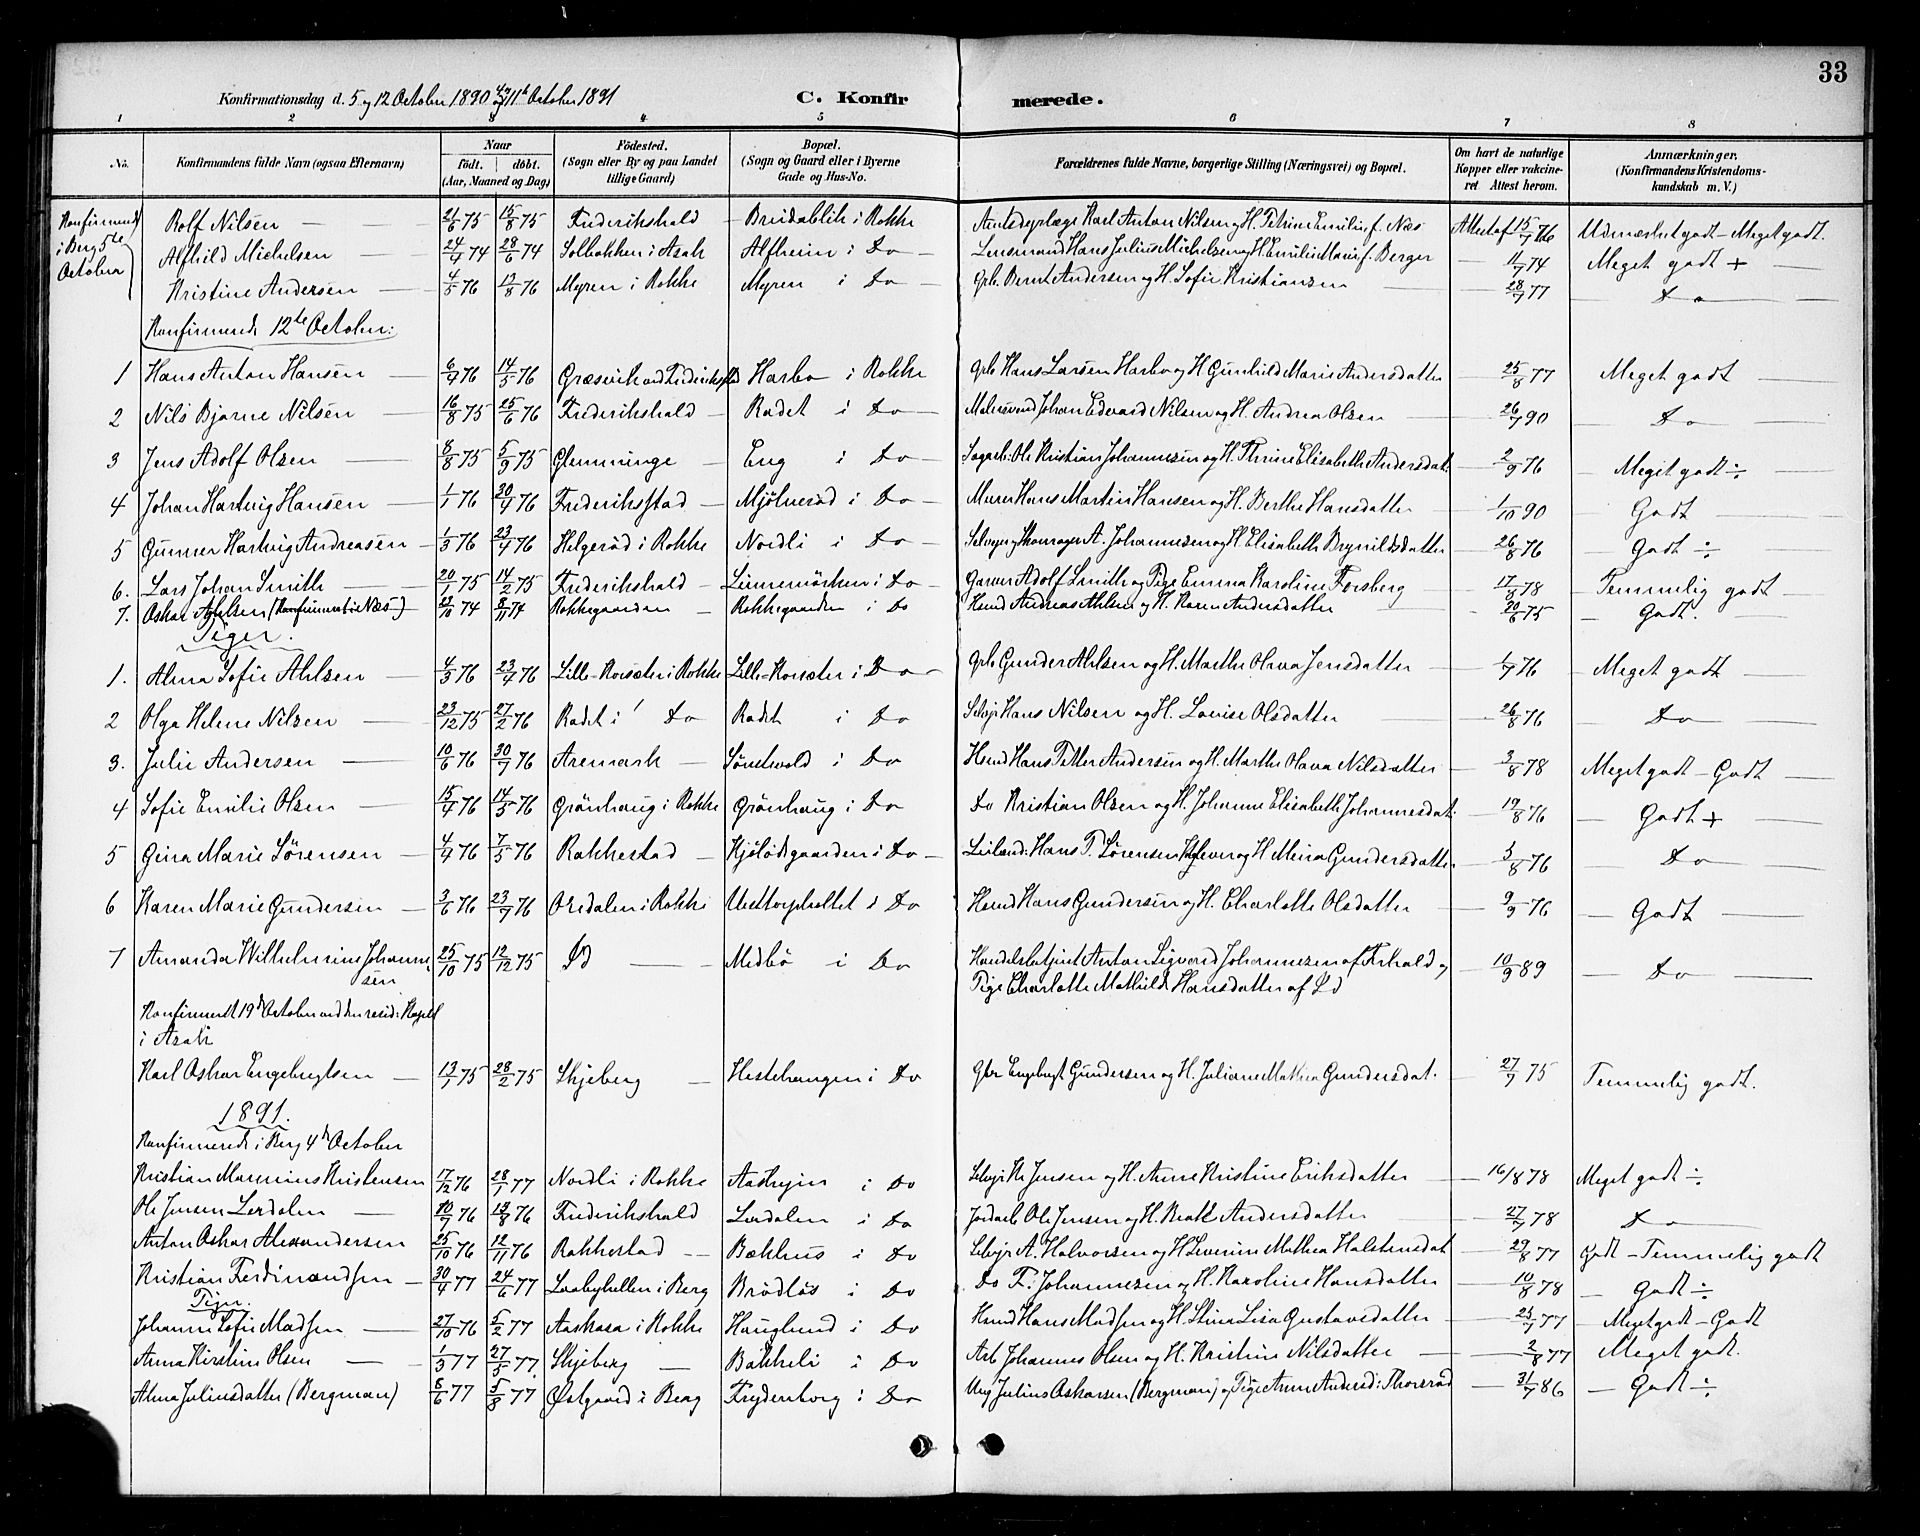 33
Konfirmationsdag d. 5 og 12 October 1890 4de og 11te October 1891 C. Konfirmerede.
1 2 3 4 5 6 7 8
No. Konfirmandens fulde Navn (ogsaa Efternavn) Naar født. døbt. (Aar, Maaned og Dag) Födested. (Sogn eller By og paa Landet tillige Gaard) Bopæl. (Sogn og Gaard eller i Byerne Gade og Hus-No. Forældrenes fulde Navne, borgerlige Stilling (Næringsvei) og Bopæl. Om havt de naturlige Kopper eller vakcineret Attest herom. Anmærkninger. (Konfirmandens Kristendomskundskab m. V.)
Konfirmered i Berg 5te October
Rolf Nilsen — 21/6 75 15/8 75 Frederikshald — Breidablik i Rokke Amtsdyrlæge Karl Anton Nilsen og H. Petrine Emilie f. Næs Attest af 15/7 76 Udmærket godt - Meget godt.
Alfhild Michelsen — 24/4 74 28/6 74 Solbakken i Asak Alfheim i Do — Lensmand Hans Julius Michelsen og H. Emilie Marie f. Berger — 11/7 74 Meget godt + —
Kristine Andersen — 4/5 76 13/8 76 Myren i Rokke Myren i Do — Grb. Bernt Andersen og H. Sofie Kristiansen — 28/7 77 — Do —
Konfirmered 12te October:
1 Hans Anton Hansen — 6/4 76 14/5 76 Græsvik ved Frederikstad Harbo i Rokke Grb Hans Larsen Harbo og H Gunhild Marie Andersdatter — 25/8 77 Meget godt —
2 Nils Bjarne Nilsen — 16/8 75 25/6 76 Frederikshald — Rødet i Do — Malersvend Johan Edvard Nilsen og H. Andrea Olsen — 26/7 90 — Do —
3 Jens Adolf Olsen — 8/8 75 5/9 75 Glemminge — Eng i Do — Sagarb. Ole Kristian Johannesen og H. Thrine Elisabeth Andersdat. — 2/9 76 — Meget godt ÷
4 Johan Hartvig Hansen — 1/1 76 30/4 76 Frederiksstad — Mjølnerød i Do — Murer Hans Martin Hansen og H. Berthe Hansdatter — 1/10 90 — Godt —
5 Gunner Hartvig Andreasen — 1/3 76 23/4 76 Helgerød i Rokke Nordli i Do — Selveier og Skomager A. Johannesen og H. Elisabeth Brynildsdatter — 26/8 76 — Godt ÷
6. Lars Johan Smith — 20/1 75 14/2 75 Frederikshald — Linnemörken i Do — Garver Adolf Smith og Pige Emma Karoline Forsberg — 17/8 78 — Temmelig godt —
7. Oskar Ahlsen (Konfirmert i Næs) 22/10 74 8/11 74 Rokkegaarden — Rokkegaarden i Do Husmd Andreas Ahlsen og H. Karen Andersdatter — 20/6 75 — Godt. —
Piger.
1. Alma Sofie Ahlsen — 4/3 76 23/4 76 Lille-Korsæter i Rokke Lille-Korsæter i Do — Grb Gunder Ahlsen og H. Marthe Olava Jensdatter — 1/7 76 — Meget godt —
2 Olga Helene Nilsen — 23/12 75 27/2 76 Rødet i Do Rødet i Do Selvjr Hans Nilsen og H. Lovise Olsdatter — 26/8 76 — Do —
3. Julie Andersen — 10/6 76 30/7 76 Aremark — Sønetvold i Do Husmd Hans Petter Andersen og H. Marthe Olava Nilsdatter — 3/8 78 Meget godt - Godt —
4 Sofie Emilie Olsen — 15/4 76 14/5 76 Grønhaug i Rokke Grønhaug i Do Do Kristian Olsen og H. Johanne Elisabeth Johannesdat. — 19/8 76 — Godt + —
5 Gina Marie Sørensen — 4/4 76 7/5 76 Rakkestad — Kjølødsgaarden i Do — Leilænd: Hans P. Sørensen og H. Mina Gundersdatter — 5/8 76 — Do —
6 Karen Marie Gundersen — 3/6 76 23/7 76 Oredalen i Rokke Vestorpholtet i Do Husmd Hans Gundersen og H. Charlotte Olsdatter — 9/9 76 — Godt —
7 Amanda Wilhelmine Johannesen 25/10 75 12/12 75 Id — Medbö i Do Handelsbetjent Anton Sigvard Johannesen af Frhald og — 10/9 89 — Do —
Pige Charlotte Mathilde Hansdatter af Id
Konfirmeret 19de October ved den resid: Kapell
i Asak
Karl Oskar Engebregtsen — 13/1 75 28/2 75 Skjeberg — Hestehaugen i Do Gbr Engebregt Gundersen og H. Juliane Mathea Gundersdat. — 27/7 75 Temmelig godt.
1891.
Konfirmerede i Berg 4de October
Kristian Marenius Kristensen 17/12 76 28/1 77 Nordli i Rokke Aastryin i Do Selvjr Kr Jensen og H. Anne Kristine Eriksdatter — 16/8 78 Meget godt ÷
Ole Jensen Lerdalen — 10/7 76 13/8 76 Frederikshald Lerdalen i Do Jordarb Ole Jensen og H. Beate Andersdatter — 27/7 78 — Do —
Anton Oskar Alexandersen 25/10 76 12/11 76 Rakkestad — Bækhus i Do Selvjr A. Halvorsen og H Severine Mathea Halstensdat — 29/8 77 Godt - Temmelig godt
Kristian Ferdinandsen — 30/4 77 24/6 77 Laabyhellen i Berg Brødløs i Do Do F. Johannesen og H. Karoline Hansdatter — 10/8 78 — Godt ÷
Piger.
Johanne Sofie Madsen — 27/10 76 5/2 77 Aaskasa i Rokke Hauglund i Do Husmd Hans Madsen og H. Stina Lisa Gustavsdatter — 25/7 77 — Meget godt - Godt
Anna Kirstine Olsen — 1/3 77 27/5 77. Skjeberg — Bakkeli i Do Arb Johannes Olsen og H. Kristine Nilsdatter — 2/8 77 — Meget godt.
Alma Juliusdatter (Bergman) 8/6 77 5/8 77 Østgaard i Berg Frydenborg i Do Ung Julius Oskarsen (Bergman) og Pige Anne Andersd: Thorsrød — 31/7 86 — Godt ÷